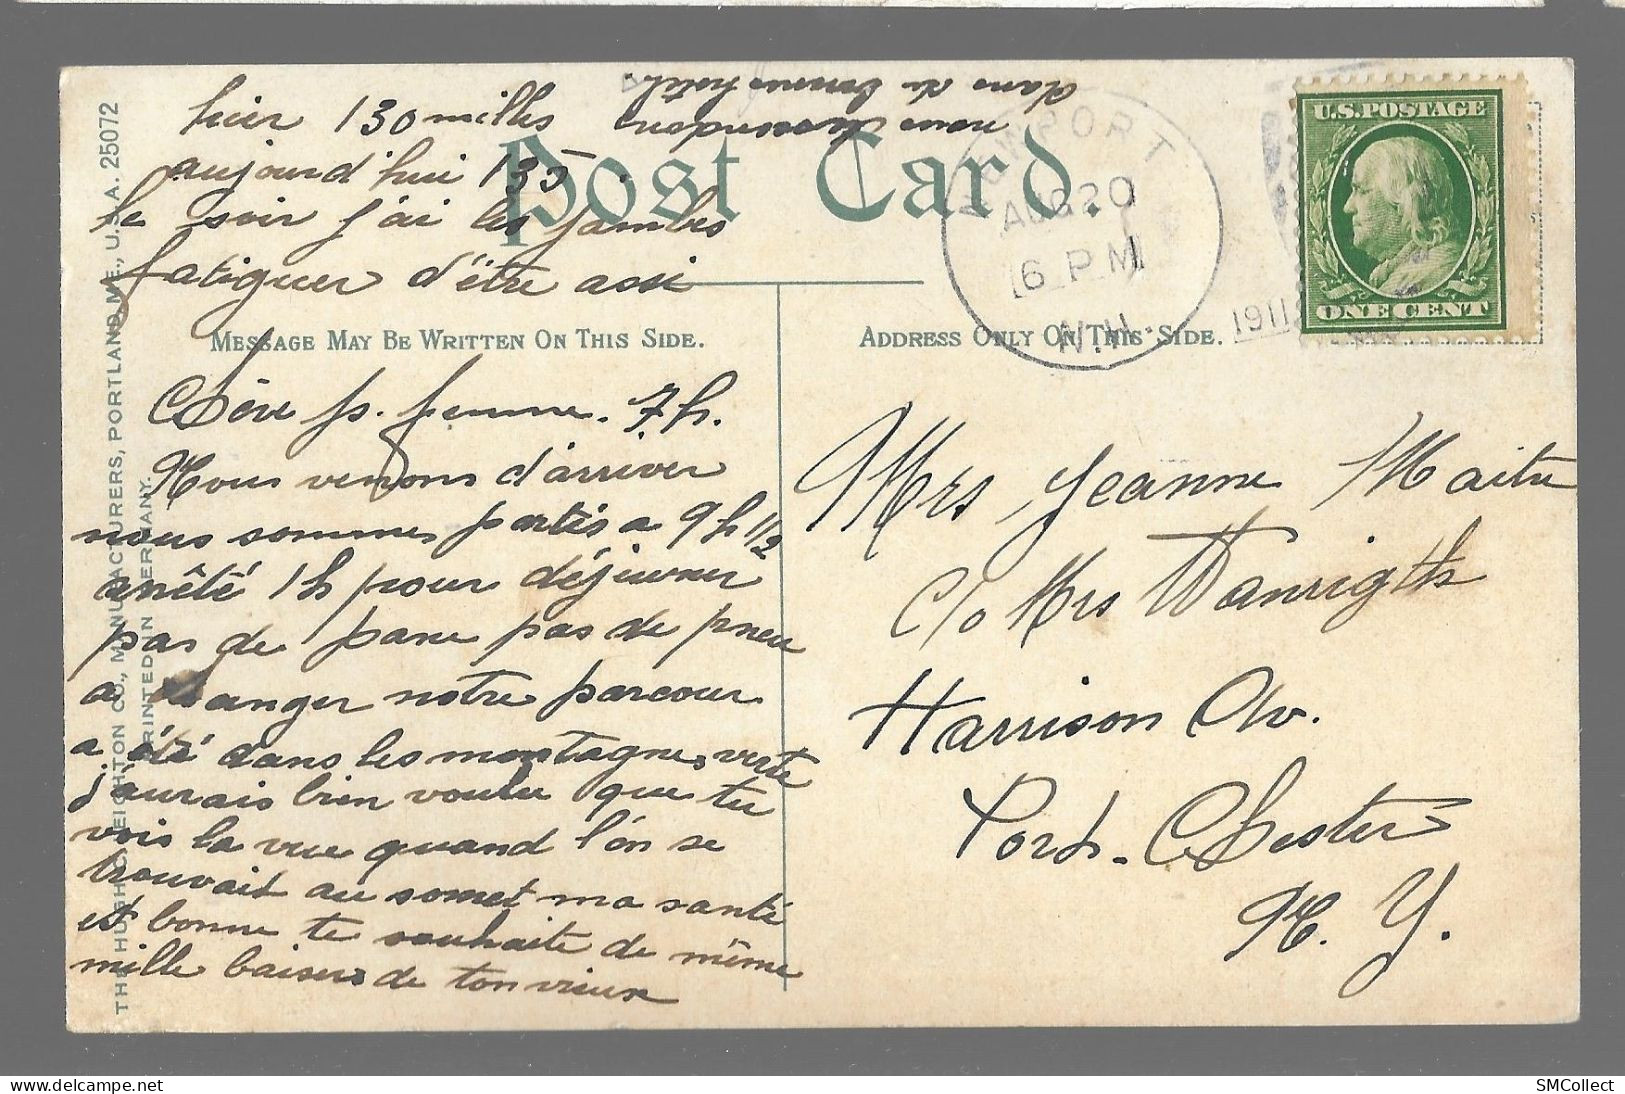 hier 130 milles
aujourd'hui 135.
le soir j'ai les jambes
fatiguer d'être assi
nous dessendon
dans de bonne hotel.
Post Card.
NEWPORT
AUG 20
6 P M
N.H.
1911
U.S. POSTAGE
ONE CENT
MESSAGE MAY BE WRITTEN ON THIS SIDE.
ADDRESS ONLY ON THIS SIDE.
Chère p. femme. 7 h.
Nous venons d'arriver
nous sommes partés a 9 h 1/2
arrêté 1h pour déjeuner
pas de pane pas de pneu
a changer notre parcour
a été dans les montagnes verte
j'aurais bien voulu que tu
vois la vue quand l'on se
trouvait au somet ma santé
est bonne te souhaite de même
mille baisers de ton vieux
Mrs Jeanne Maitre
c/o Mrs Wanrigth
Harrison Av.
Port-Chester
N. Y.
THE HUGH C. LEIGHTON CO., MANUFACTURERS, PORTLAND, ME., U.S.A. 25072
PRINTED IN GERMANY.
SMCollect